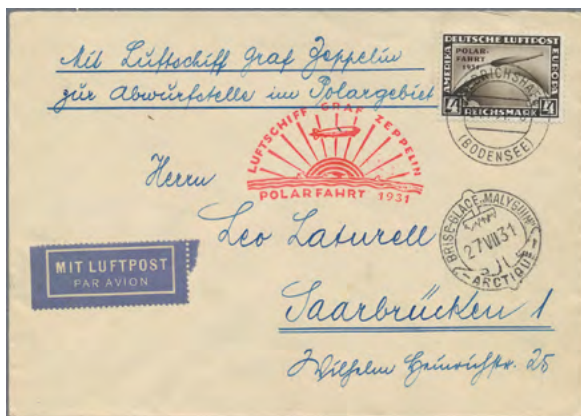 Mit Luftschiff Graf Zeppelin
zur Abwurfstelle im Polargebiet
DEUTSCHE LUFTPOST
AMERIKA
EUROPA
POLAR-
FAHRT
1931
4 REICHSMARK 4
FRIEDRICHSHAFEN
(BODENSEE)
LUFTSCHIFF GRAF ZEPPELIN
POLARFAHRT 1931
Herrn
Leo Laturell
BRISE-GLACE „MALYGUIN"
27 VII 31
ARCTIQUE
MIT LUFTPOST
PAR AVION
Saarbrücken 1
Wilhelm Heinrichstr. 25